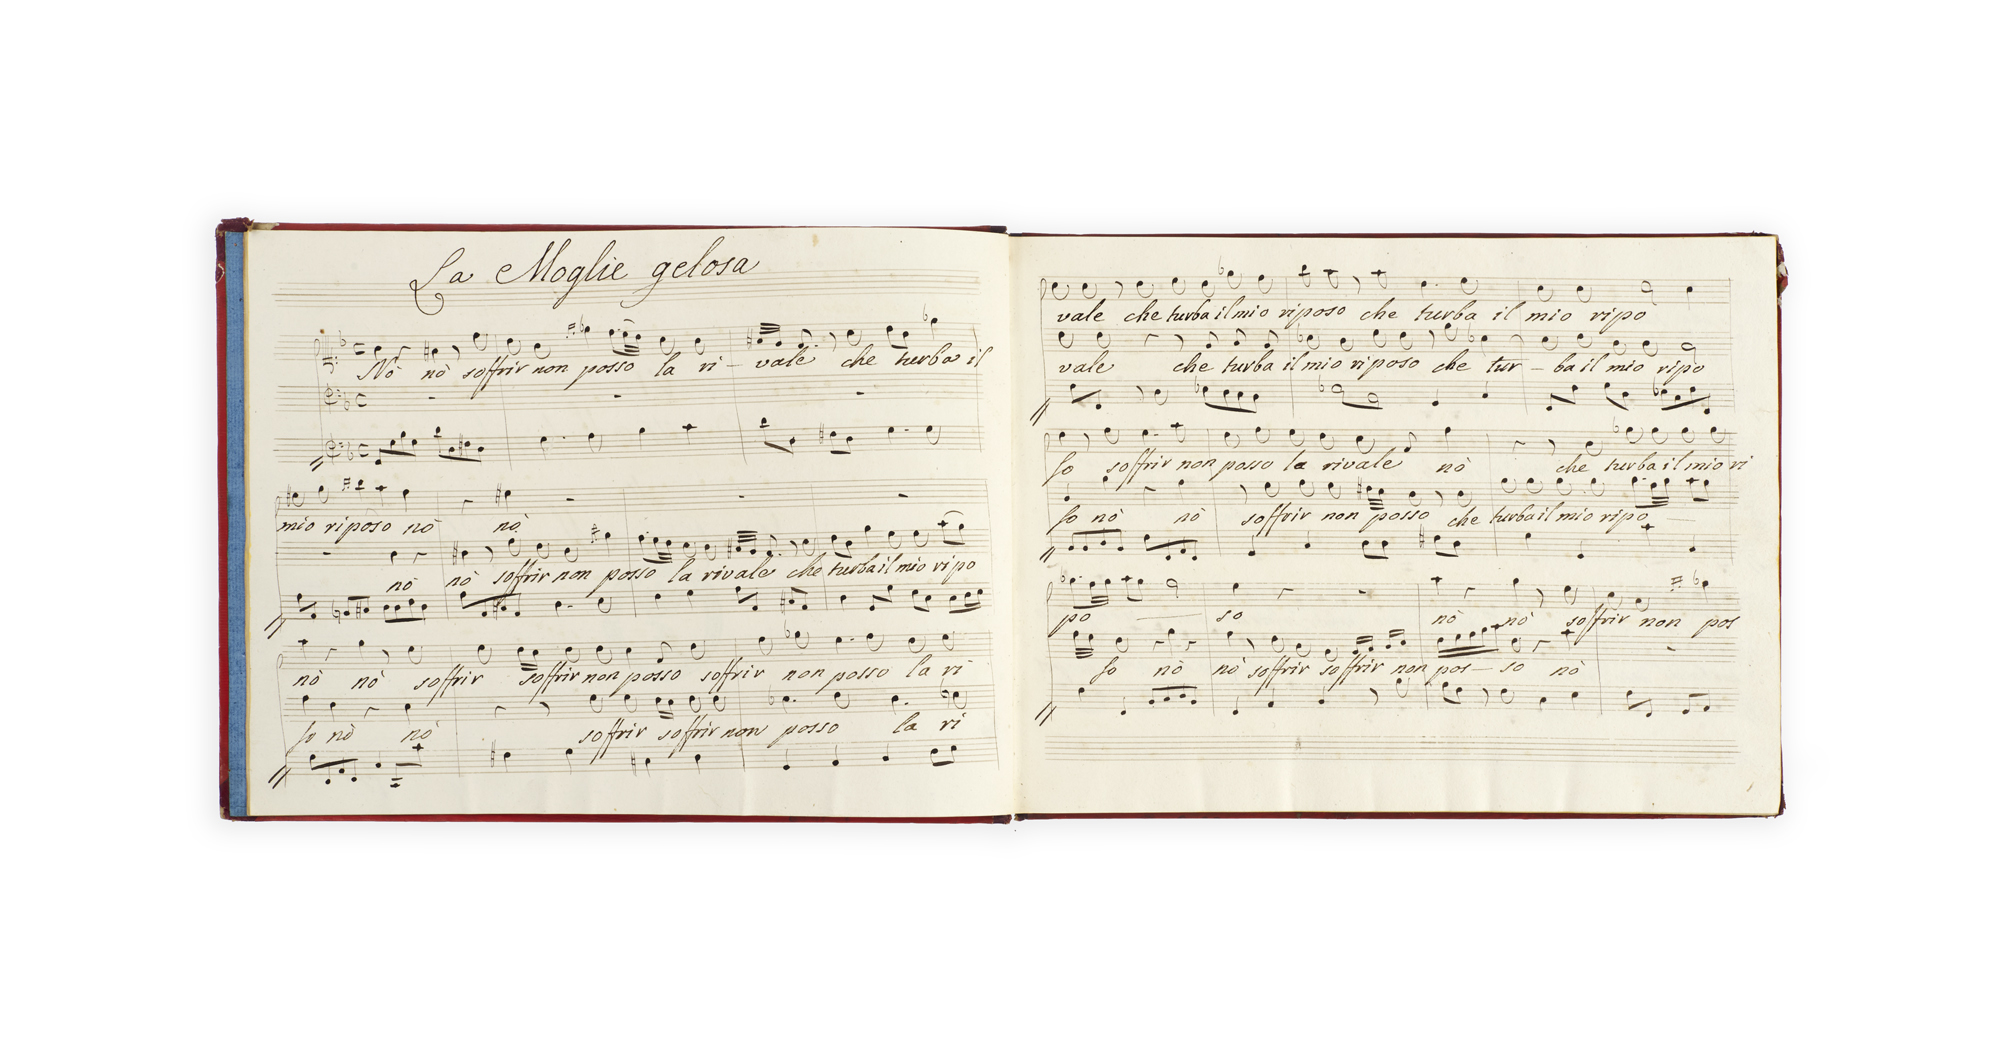 La Moglie gelosa
Nò nò soffrir non posso la ri - vale che turba il
mio riposo nò nò
nò nò soffrir non posso la rivale che turba il mio ripo
nò nò soffrir soffrir non posso soffrir non posso la ri
so nò nò soffrir soffrir non posso la ri
vale che turba il mio riposo che turba il mio ripo
vale che turba il mio riposo che tur - ba il mio ripo
so soffrir non posso la rivale nò che turba il mio ri
so nò nò soffrir non posso che turba il mio ripo
po so nò nò soffrir non pos
so nò nò soffrir soffrir non pos - so nò